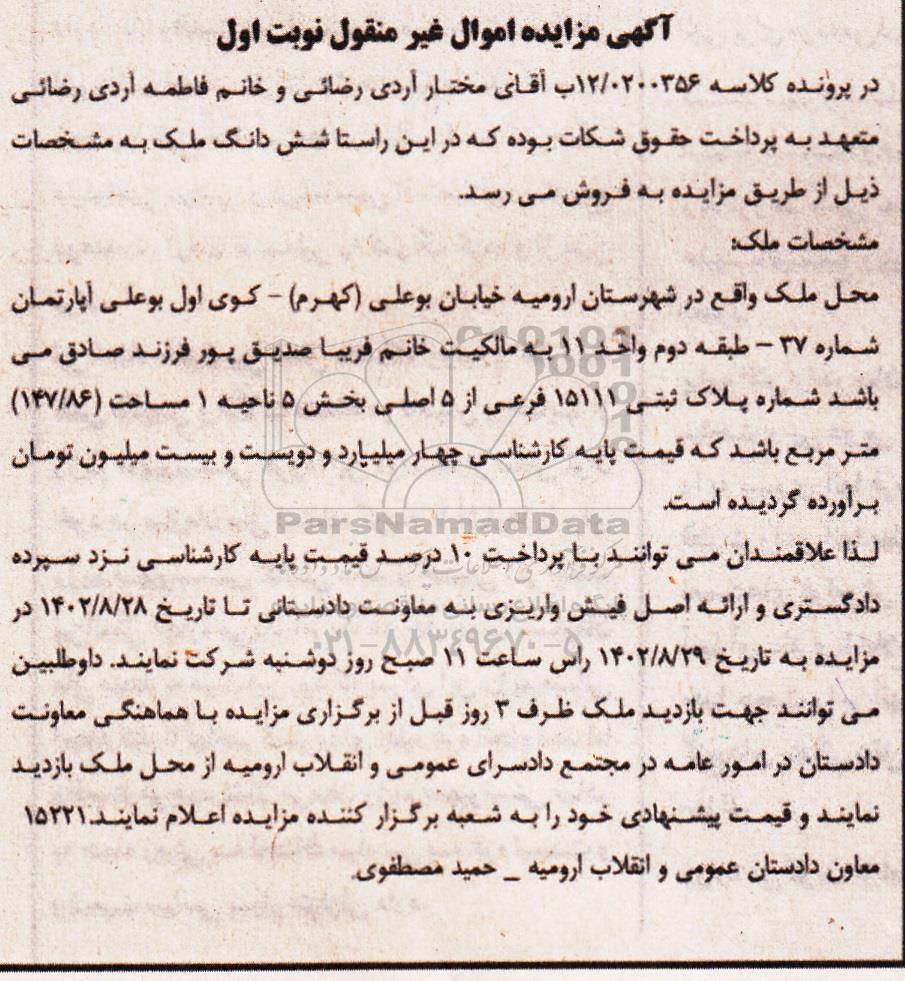 آگهی مزایده اموال غیر منقول نوبت اول
در پرونده کلاسه ۱۲/۰۲۰۰۳۵۶ب آقای مختار آردی رضائی و خانم فاطمه آردی رضائی
متعهد به پرداخت حقوق شکات بوده که در این راستا شش دانگ ملک به مشخصات
ذیل از طریق مزایده به فروش می رسد.
مشخصات ملک:
محل ملک واقع در شهرستان ارومیه خیابان بوعلی (کهرم) – کوی اول بوعلی آپارتمان
شماره ۳۷ – طبقه دوم واحد ۱۱ به مالکیت خانم فریبا صدیق پور فرزند صادق می
باشد شماره پلاک ثبتی ۱۵۱۱۱ فرعی از ۵ اصلی بخش ۵ ناحیه ۱ مساحت (۱۴۷/۸۶)
متر مربع باشد که قیمت پایه کارشناسی چهار میلیارد و دویست و بیست میلیون تومان
برآورده گردیده است.
ParsNamadData
لذا علاقمندان می توانند با پرداخت ۱۰ درصد قیمت پایه کارشناسی نزد سپرده
دادگستری و ارائه اصل فیش واریزی به معاونت دادستانی تا تاریخ ۱۴۰۲/۸/۲۸ در
۰۲۱-۸۸۳۴۹۶۷۰-۵
مزایده به تاریخ ۱۴۰۲/۸/۲۹ راس ساعت ۱۱ صبح روز دوشنبه شرکت نمایند. داوطلبین
می توانند جهت بازدید ملک ظرف ۳ روز قبل از برگزاری مزایده با هماهنگی معاونت
دادستان در امور عامه در مجتمع دادسرای عمومی و انقلاب ارومیه از محل ملک بازدید
نمایند و قیمت پیشنهادی خود را به شعبه برگزار کننده مزایده اعلام نمایند.۱۵۲۲۱
معاون دادستان عمومی و انقلاب ارومیه _ حمید مصطفوی